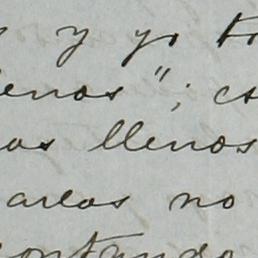 y yo
enos"; es
os llenos
areas no
ontando